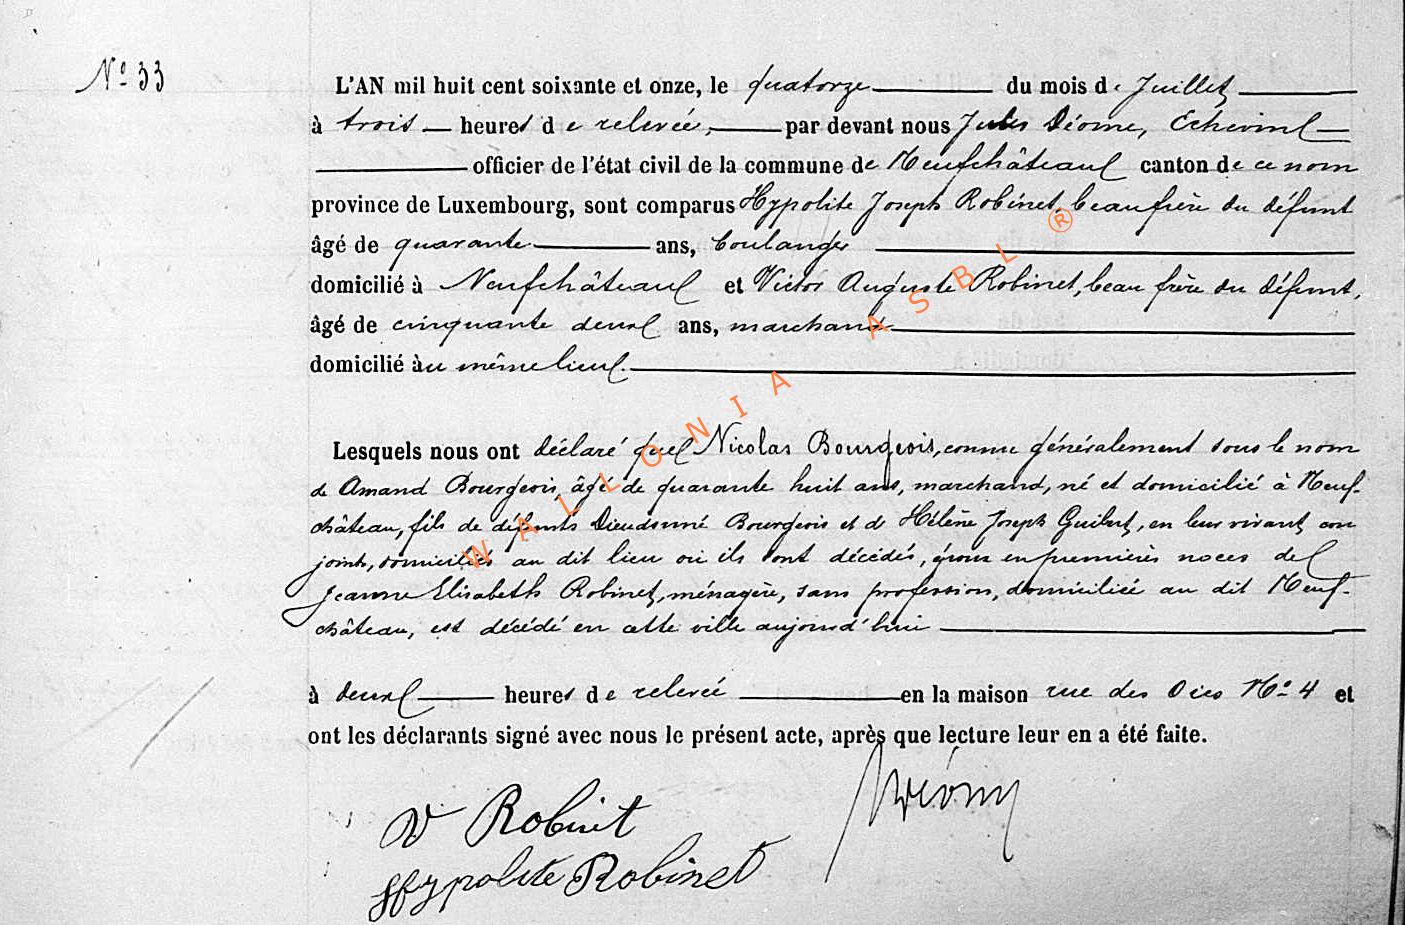 Nº 33
L'AN mil huit cent soixante et onze, le quatorze du mois de Juillet
à trois heures de relevée, par devant nous Jules Déome, Echevin
officier de l'état civil de la commune de Neufchâteau canton de ce nom
province de Luxembourg, sont comparus Hypolite Joseph Robinet, beau frère du défunt
âgé de quarante ans, boulanger
domicilié à Neufchâteau et Victor Auguste Robinet, beau frère du défunt,
âgé de cinquante deux ans, marchand
domicilié au même lieu.
Lesquels nous ont déclaré que Nicolas Bourgeois, connu généralement sous le nom
de Amand Bourgeois, âgé de quarante huit ans, marchand, né et domicilié à Neuf-
château, fils de défunts Dieudonné Bourgeois et de Hélène Joseph Guibert, en leur vivant con
joints, domiciliés au dit lieu où ils sont décédés, époux en premières noces de
Jeanne Elisabeth Robinet, ménagère, sans profession, domiciliée au dit Neuf-
château, est décédé en cette ville aujourd'hui
à deux heures de relevée en la maison rue des Oies Nº 4 et
ont les déclarants signé avec nous le présent acte, après que lecture leur en a été faite.
V Robinet
Hypolite Robinet
WALLONIA ASBL ®